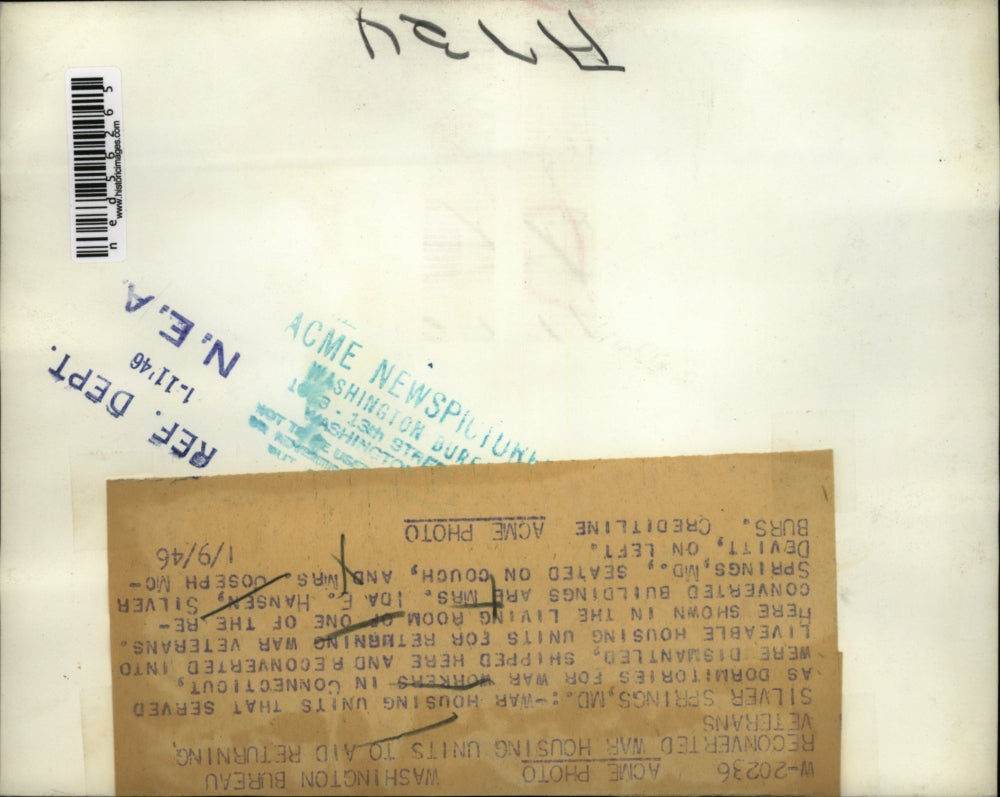 A734
ned56265
www.historicimages.com
N.E.A.
1-11'46
REF. DEPT.
ACME NEWSPICTURE
WASHINGTON BURE
13th STREE
WASHINGTO
NOT TO BE USE
BUT
W-20236 ACME PHOTO WASHINGTON BUREAU
RECONVERTED WAR HOUSING UNITS TO AID RETURNING
VETERANS
SILVER SPRINGS, MD.:-WAR HOUSING UNITS THAT SERVED
AS DORMITORIES FOR WAR WORKERS IN CONNECTICUT,
WERE DISMANTLED, SHIPPED HERE AND RECONVERTED INTO
LIVEABLE HOUSING UNITS FOR RETURNING WAR VETERANS.
HERE SHOWN IN THE LIVING ROOM OF ONE OF THE RE-
CONVERTED BUILDINGS ARE MRS. IDA E. HANSEN, SILVER
SPRINGS, MD., SEATED ON COUCH, AND MRS. JOSEPH MC-
DEVITT, ON LEFT. 1/9/46
BURS. CREDITLINE ACME PHOTO